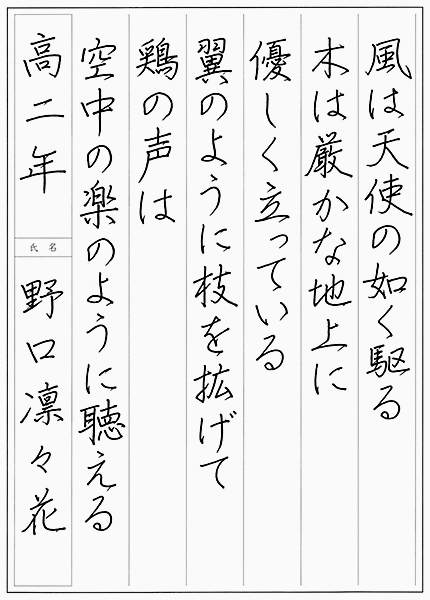 風は天使の如く駆る
木は厳かな地上に
優しく立っている
翼のように枝を拡げて
鶏の声は
空中の楽のように聴える
高二年
氏名
野口凛々花